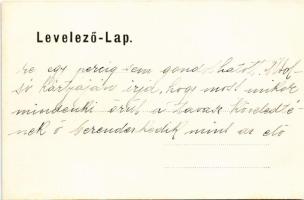 Levelező-Lap.
re egy percig sem gondolhatok. Utol-
só kártyáján írja, hogy most mikor
mindenki örül a tavasz közeledté-
nek ő berendezkedik mint az elő